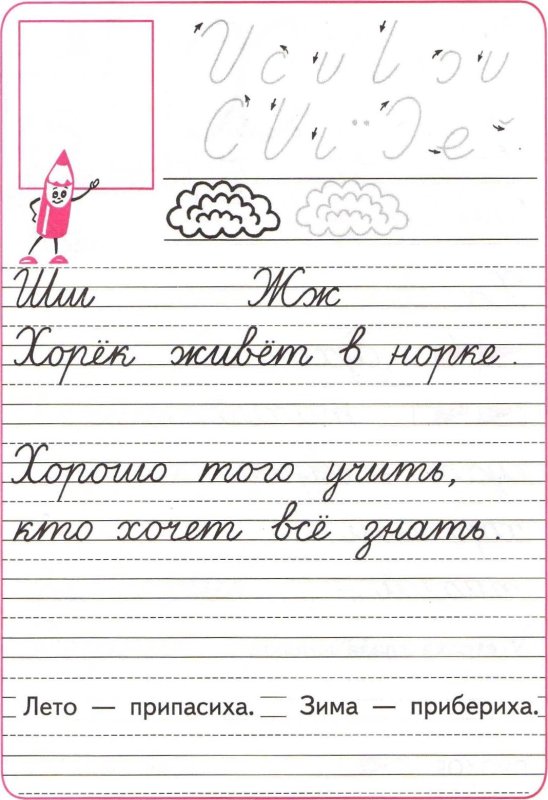 Шш Жж
Хорёк живёт в норке.
Хорошо того учить,
кто хочет всё знать.
Лето — припасиха. Зима — прибериха.